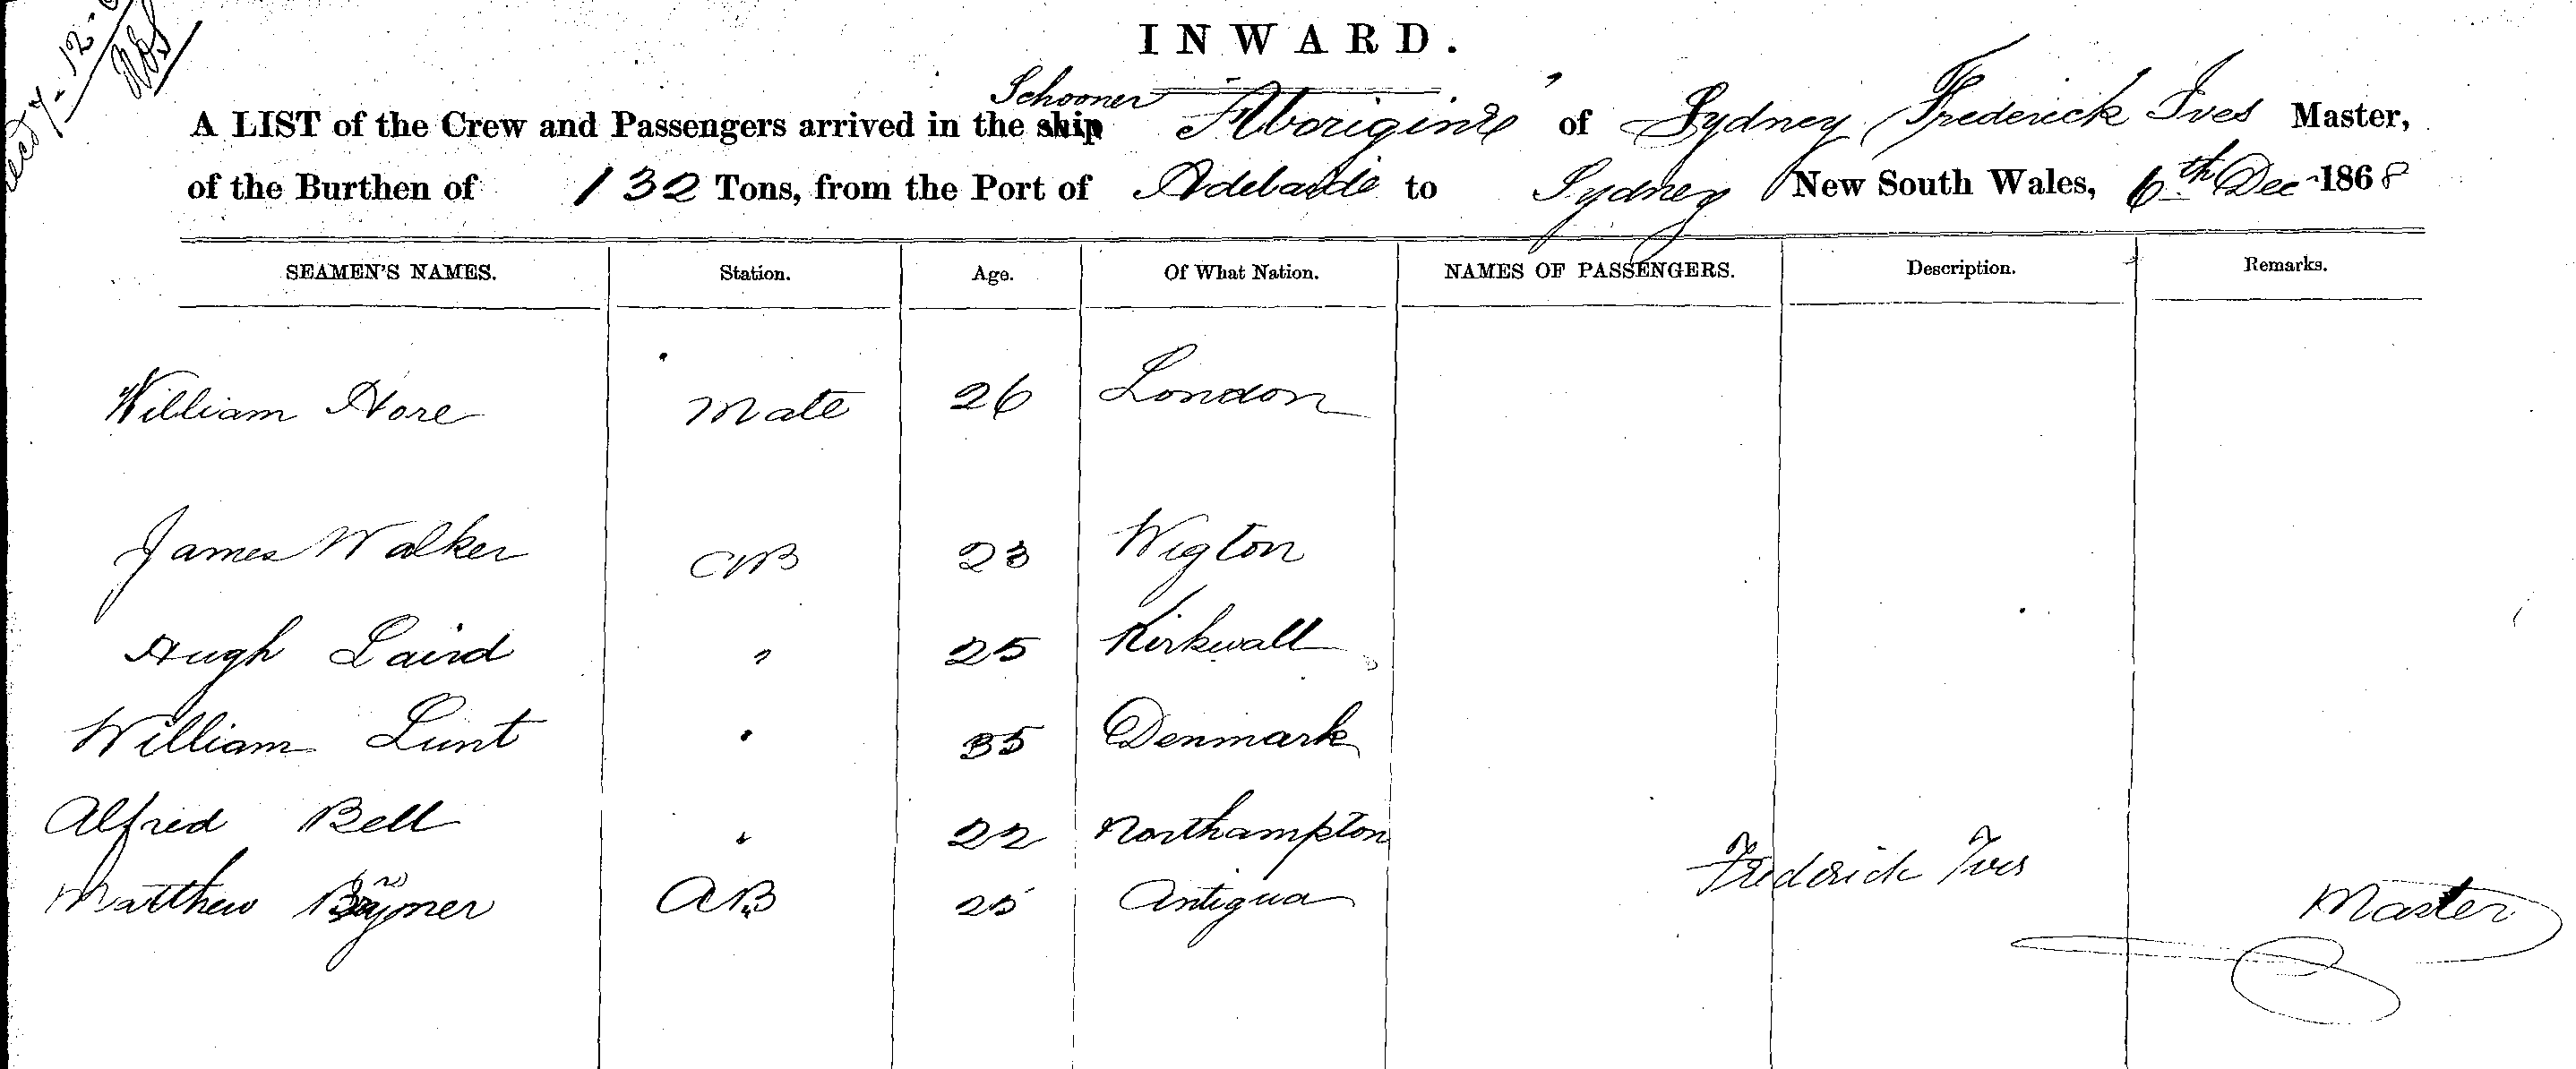 Recd 7-12-6
INWARD.
Schooner
A LIST of the Crew and Passengers arrived in the ship Aborigine of Sydney, Frederick Ives Master,
of the Burthen of 132 Tons, from the Port of Adelaide to Sydney New South Wales, 6th Dec 1868
SEAMEN'S NAMES. Station. Age. Of What Nation. NAMES OF PASSENGERS. Description. Remarks.
William Hore Mate 26 London
James Walker AB 23 Wigton
Hugh Laird " 25 Kirkwall
William Lunt " 35 Denmark
Alfred Bell " 22 Northampton
Matthew AB 25 Antigua
Frederick Ives Master